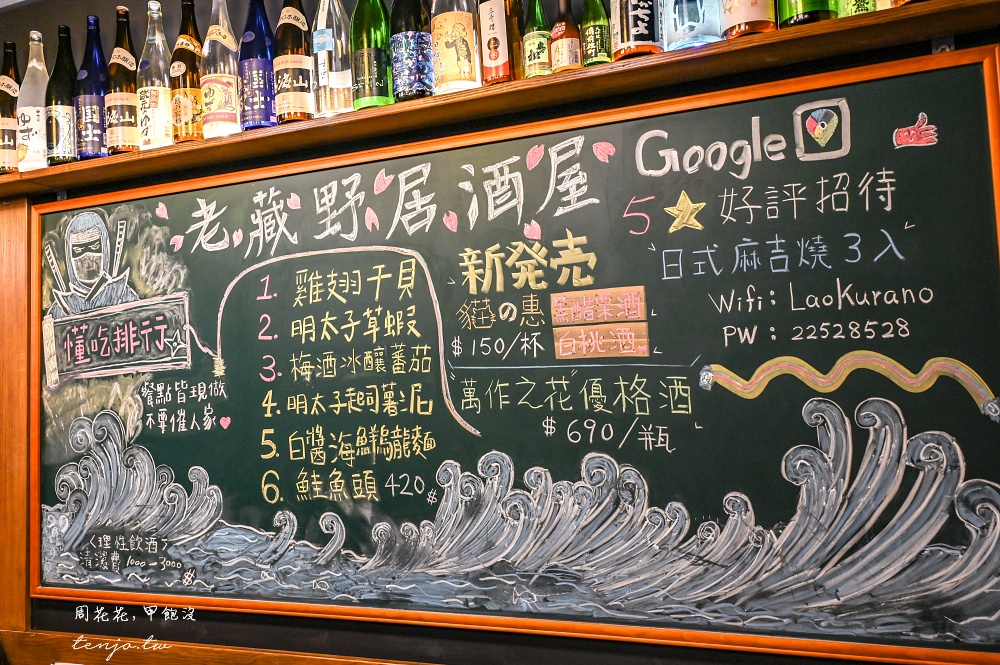 老藏野居酒屋
Google
5 好評招待
日式麻吉燒3入
Wifi: LaoKurano
PW: 22528528
懂吃排行
餐點皆現做
不要催人家
1. 雞翅干貝
2. 明太子草蝦
3. 梅酒冰釀蕃茄
4. 明太子起司薯泥
5. 白醬海鮮烏龍麵
6. 鮭魚頭 420$
新発売
の惠
白桃酒
$150/杯
萬作之花優格酒
$690/瓶
<理性飲酒>
清潔費 1000-3000$
周花花,甲飽沒
tenjo.tw